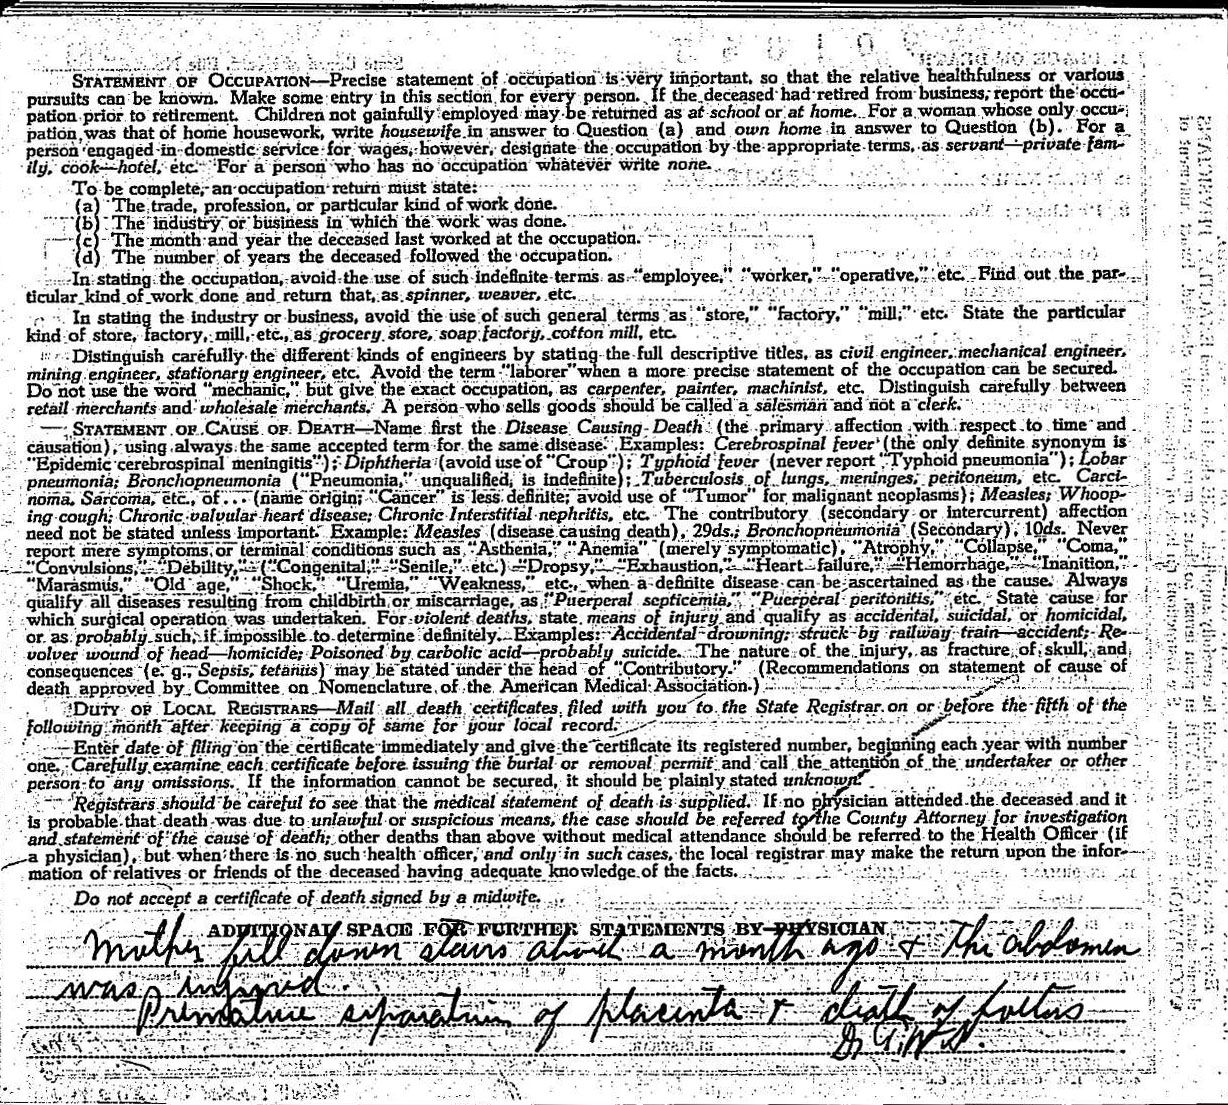 STATEMENT OF OCCUPATION—Precise statement of occupation is very important, so that the relative healthfulness or various
pursuits can be known. Make some entry in this section for every person. If the deceased had retired from business, report the occu-
pation prior to retirement. Children not gainfully employed may be returned as at school or at home. For a woman whose only occu-
pation was that of home housework, write housewife in answer to Question (a) and own home in answer to Question (b). For a
person engaged in domestic service for wages, however, designate the occupation by the appropriate terms, as servant—private fam-
ily, cook—hotel, etc. For a person who has no occupation whatever write none.
To be complete, an occupation return must state:
(a) The trade, profession, or particular kind of work done.
(b) The industry or business in which the work was done.
(c) The month and year the deceased last worked at the occupation.
(d) The number of years the deceased followed the occupation.
In stating the occupation, avoid the use of such indefinite terms as "employee," "worker," "operative," etc. Find out the par-
ticular kind of work done and return that, as spinner, weaver, etc.
In stating the industry or business, avoid the use of such general terms as "store," "factory," "mill," etc. State the particular
kind of store, factory, mill, etc., as grocery store, soap factory, cotton mill, etc.
Distinguish carefully the different kinds of engineers by stating the full descriptive titles, as civil engineer, mechanical engineer,
mining engineer, stationary engineer, etc. Avoid the term "laborer" when a more precise statement of the occupation can be secured.
Do not use the word "mechanic," but give the exact occupation, as carpenter, painter, machinist, etc. Distinguish carefully between
retail merchants and wholesale merchants. A person who sells goods should be called a salesman and not a clerk.
STATEMENT OF CAUSE OF DEATH—Name first the Disease Causing Death (the primary affection with respect to time and
causation), using always the same accepted term for the same disease. Examples: Cerebrospinal fever (the only definite synonym is
"Epidemic cerebrospinal meningitis"); Diphtheria (avoid use of "Croup"); Typhoid fever (never report "Typhoid pneumonia"); Lobar
pneumonia; Bronchopneumonia ("Pneumonia," unqualified, is indefinite); Tuberculosis of lungs, meninges, peritoneum, etc. Carci-
noma, Sarcoma, etc., of . . . (name origin; "Cancer" is less definite; avoid use of "Tumor" for malignant neoplasms); Measles; Whoop-
ing cough; Chronic valvular heart disease; Chronic Interstitial nephritis, etc. The contributory (secondary or intercurrent) affection
need not be stated unless important. Example: Measles (disease causing death), 29ds.; Bronchopneumonia (Secondary), 10ds. Never
report mere symptoms or terminal conditions such as "Asthenia," "Anemia" (merely symptomatic), "Atrophy," "Collapse," "Coma,"
"Convulsions," "Debility," ("Congenital," "Senile," etc.) "Dropsy," "Exhaustion," "Heart failure," "Hemorrhage," "Inanition,"
"Marasmus," "Old age," "Shock," "Uremia," "Weakness," etc., when a definite disease can be ascertained as the cause. Always
qualify all diseases resulting from childbirth or miscarriage, as "Puerperal septicemia," "Puerperal peritonitis," etc. State cause for
which surgical operation was undertaken. For violent deaths, state means of injury and qualify as accidental, suicidal, or homicidal,
or as probably such, if impossible to determine definitely. Examples: Accidental drowning; struck by railway train—accident; Re-
volver wound of head—homicide; Poisoned by carbolic acid—probably suicide. The nature of the injury, as fracture of skull, and
consequences (e. g., Sepsis, tetanus) may be stated under the head of "Contributory." (Recommendations on statement of cause of
death approved by Committee on Nomenclature of the American Medical Association.)
DUTY OF LOCAL REGISTRARS—Mail all death certificates filed with you to the State Registrar on or before the fifth of the
following month after keeping a copy of same for your local record.
Enter date of filing on the certificate immediately and give the certificate its registered number, beginning each year with number
one. Carefully examine each certificate before issuing the burial or removal permit and call the attention of the undertaker or other
person to any omissions. If the information cannot be secured, it should be plainly stated unknown.
Registrars should be careful to see that the medical statement of death is supplied. If no physician attended the deceased and it
is probable that death was due to unlawful or suspicious means, the case should be referred to the County Attorney for investigation
and statement of the cause of death; other deaths than above without medical attendance should be referred to the Health Officer (if
a physician), but when there is no such health officer, and only in such cases, the local registrar may make the return upon the infor-
mation of relatives or friends of the deceased having adequate knowledge of the facts.
Do not accept a certificate of death signed by a midwife.
ADDITIONAL SPACE FOR FURTHER STATEMENTS BY PHYSICIAN
Mother fell down stairs about a month ago & the abdomen
was injured.
Premature separation of placenta & death of foetus
Dr